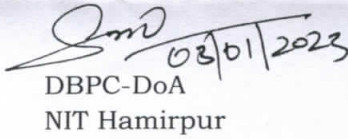 03/01/2023
DBPC-DoA
NIT Hamirpur